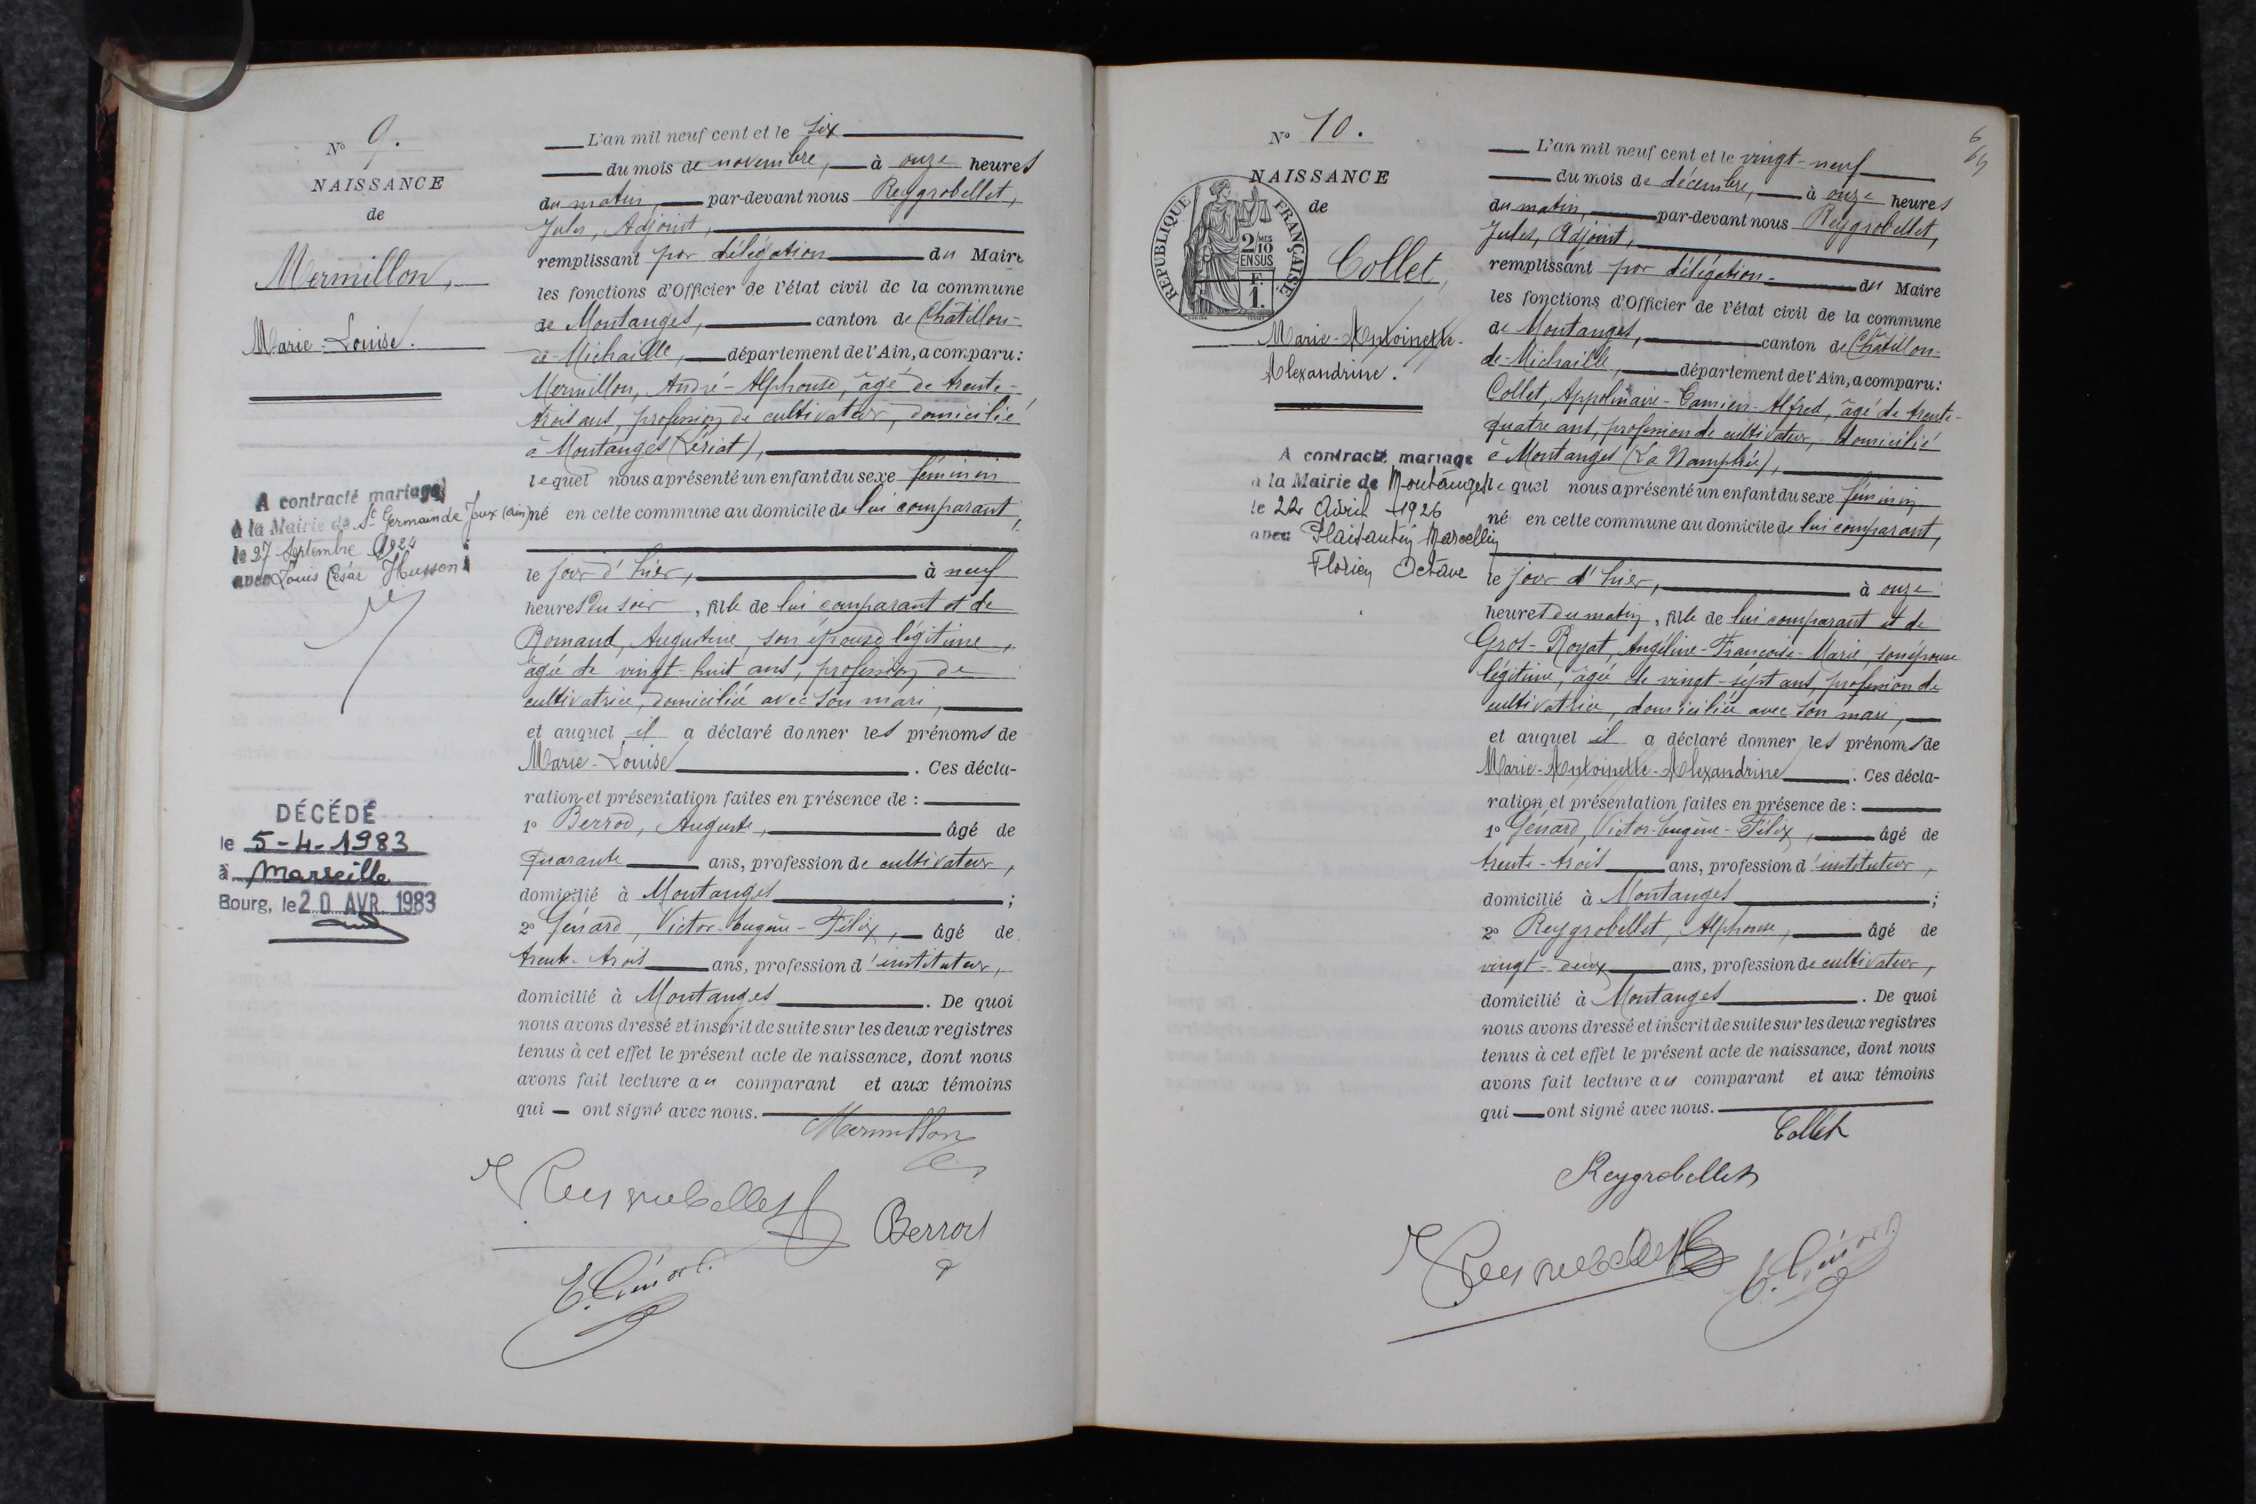 N° 9.
NAISSANCE
de
Mermillon,
Marie-Louise.
A contracté mariage
à la Mairie de St Germain de Joux (Ain)
le 27 Septembre 1924
avec Louis César Husson
DÉCÉDÉ
le 5-4-1983
à Marseille
Bourg, le 20 AVR. 1983
L'an mil neuf cent et le six
du mois de novembre, à onze heures
du matin, par-devant nous Reygrobellet,
Jules, Adjoint,
remplissant par délégation du Maire
les fonctions d'Officier de l'état civil de la commune
de Montanges, canton de Châtillon-
de-Michaille, département de l'Ain, a comparu :
Mermillon, André-Alphonse, âgé de trente-
trois ans, profession de cultivateur, domicilié
à Montanges (Lériat),
lequel nous a présenté un enfant du sexe féminin
né en cette commune au domicile de lui comparant,
le jour d'hier, à neuf
heures du soir, fille de lui comparant et de
Romand, Augustine, son épouse légitime,
âgée de vingt-huit ans, profession de
cultivatrice, domiciliée avec son mari,
et auquel il a déclaré donner les prénoms de
Marie-Louise. Ces décla-
ration et présentation faites en présence de :
1° Berrod, Auguste, âgé de
quarante ans, profession de cultivateur,
domicilié à Montanges ;
2° Génard, Victor-Eugène-Félix, âgé de
trente-trois ans, profession d'instituteur,
domicilié à Montanges. De quoi
nous avons dressé et inscrit de suite sur les deux registres
tenus à cet effet le présent acte de naissance, dont nous
avons fait lecture au comparant et aux témoins
qui ont signé avec nous.
Mermillon
Reygrobellet
Berrod
E. Génard
6/6
N° 10.
NAISSANCE
de
RÉPUBLIQUE FRANÇAISE
2/10MES
EN SUS
F.
1.
Collet,
Marie-Antoinette-
Alexandrine.
A contracté mariage
à la Mairie de Montanges
le 22 Avril 1926
avec Plaisantin Marcellin
Florien Octave
L'an mil neuf cent et le vingt-neuf
du mois de décembre, à onze heures
du matin, par-devant nous Reygrobellet,
Jules, Adjoint,
remplissant par délégation du Maire
les fonctions d'Officier de l'état civil de la commune
de Montanges, canton de Châtillon-
de-Michaille, département de l'Ain, a comparu :
Collet, Appolinaire-Camien-Alfred, âgé de trente-
quatre ans, profession de cultivateur, domicilié
à Montanges (La
lequel nous a présenté un enfant du sexe féminin
né en cette commune au domicile de lui comparant,
le jour d'hier, à onze
heures du matin, fille de lui comparant et de
Gros-Royat, Angéline-Françoise-Marie, son épouse
légitime, âgée de vingt-sept ans, profession de
cultivatrice, domiciliée avec son mari,
et auquel il a déclaré donner les prénoms de
Marie-Antoinette-Alexandrine. Ces décla-
ration et présentation faites en présence de :
1° Génard, Victor-Eugène-Félix, âgé de
trente-trois ans, profession d'instituteur,
domicilié à Montanges ;
2° Reygrobellet, Alphonse, âgé de
vingt-deux ans, profession de cultivateur,
domicilié à Montanges. De quoi
nous avons dressé et inscrit de suite sur les deux registres
tenus à cet effet le présent acte de naissance, dont nous
avons fait lecture au comparant et aux témoins
qui ont signé avec nous.
Collet
Reygrobellet
Reygrobellet
E. Génard